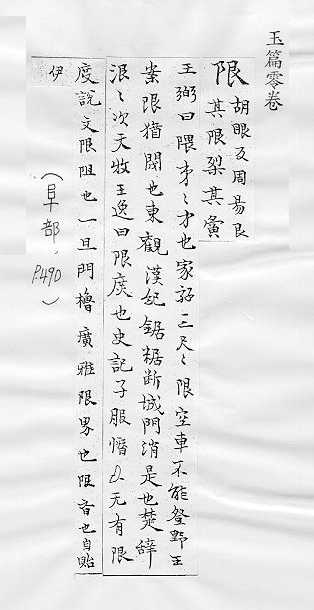 玉篇零卷
限 胡眼反周易艮
其限裂其夤
王弼曰限身之中也家語三尺之限空車不能登野王
案限猶閾也東觀漢紀鋸斷城門消是也楚辭
限之次天牧王逸曰限度也史記子服惛以无有限
度說文限阻也一旦門榰廣雅限界也限音也自貽
伊
(阜部, P.490)